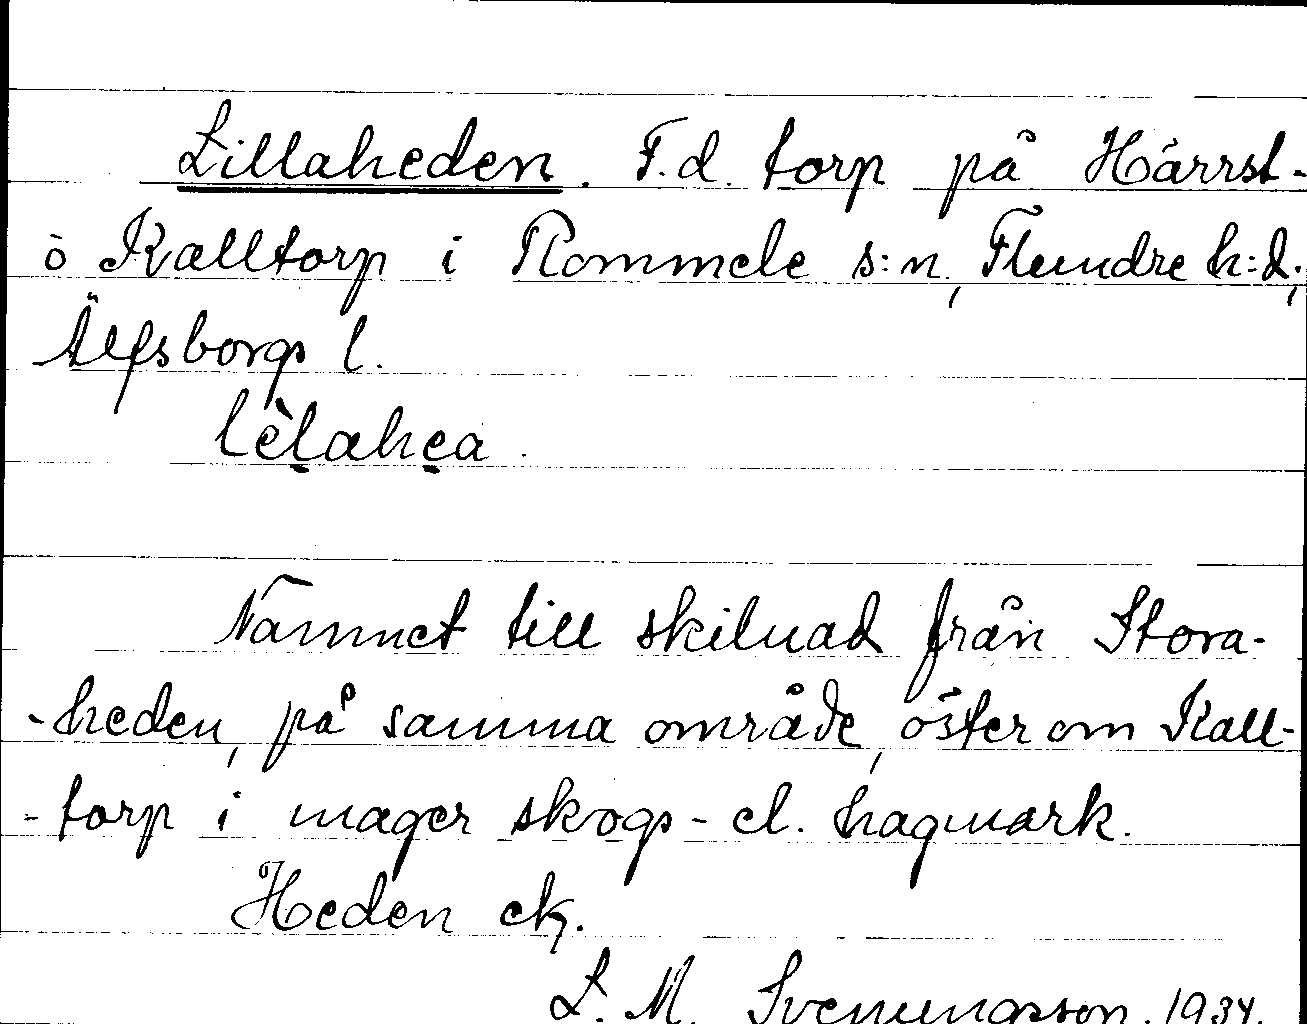 Lillaheden. F.d. torp på Härrst-
ö Kalltorp i Rommele s:n, Flundre h:d,
Älfsborgs l.
lèlahea.
Namnet till skilnad från Stora-
-heden, på samma område, öster om Kall-
-torp i mager skogs- el. hagmark.
Heden ek.
L. M. Svenungsson. 1934.